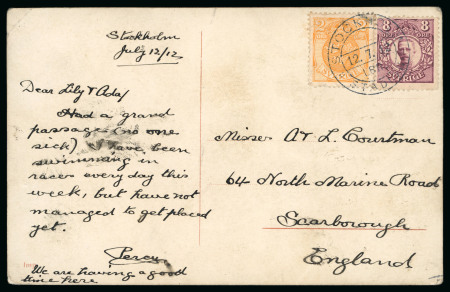 Stockholm
July 12/12
Dear Lily & Ada/
Had a grand
passage (no one
sick). I have been
swimming in
races every day this
week, but have not
managed to get placed
yet.
Percy
We are having a good
time here
STOCKHOLM
12.7.
8 8
SVERIGE
Misses A & L. Courtman
64 North Marine Road
Scarborough
England